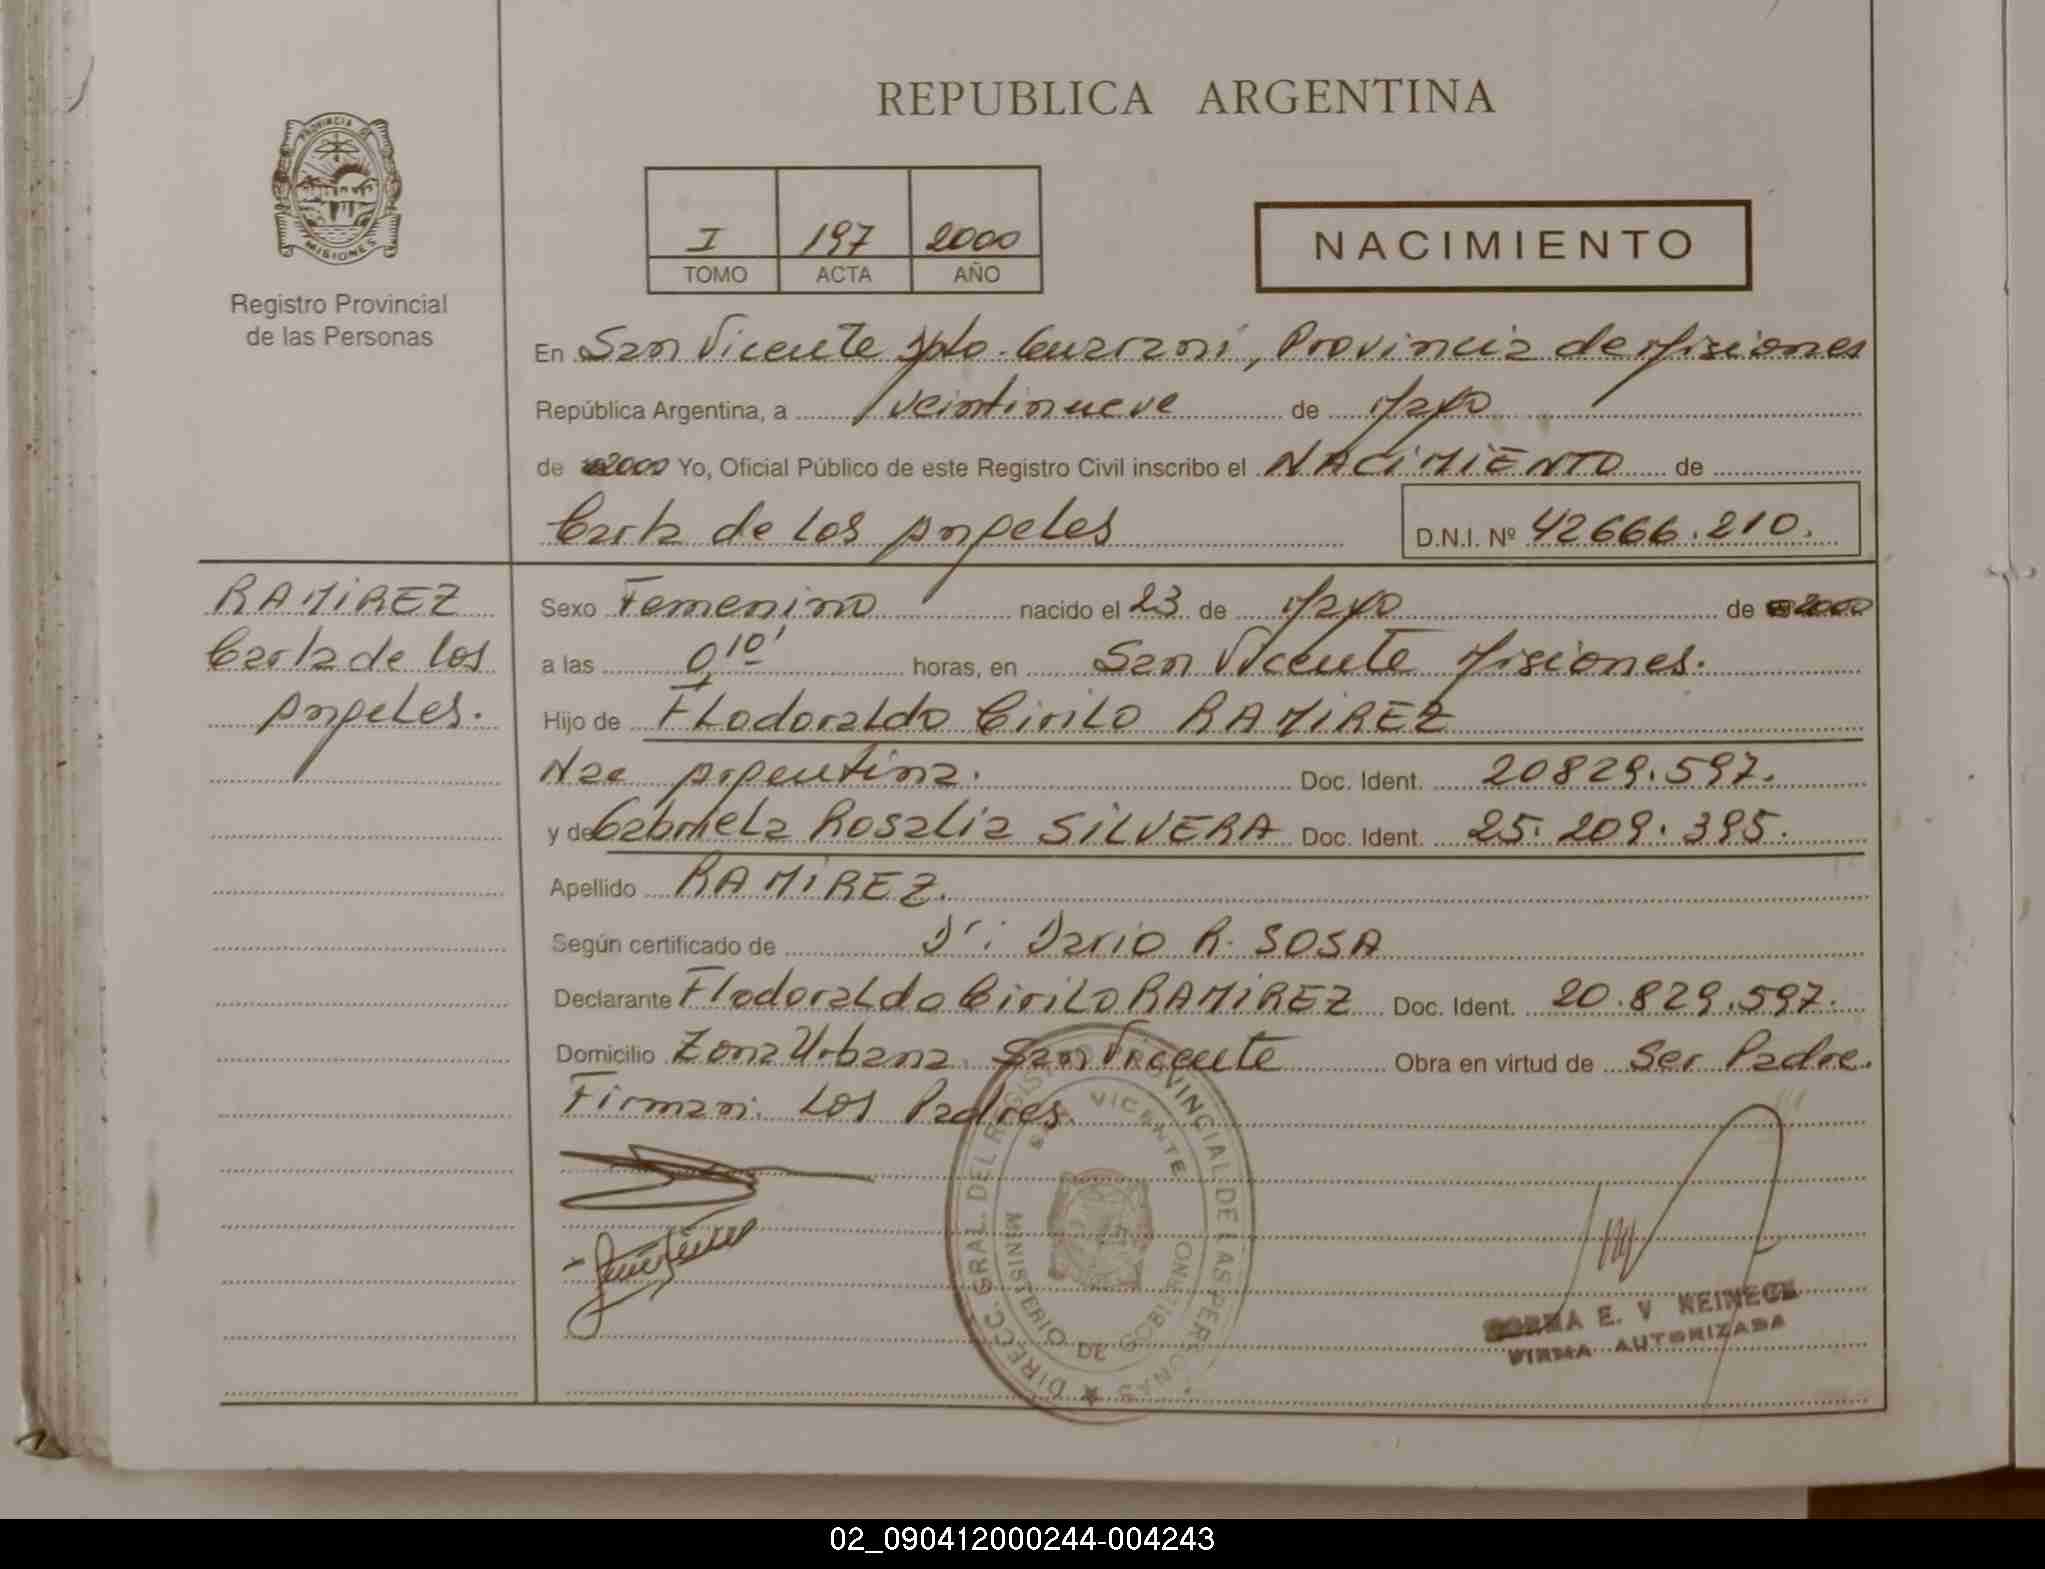 REPUBLICA ARGENTINA
PROVINCIA DE
MISIONES
Registro Provincial
de las Personas
I 197 2000
TOMO ACTA AÑO
NACIMIENTO
En San Vicente Dpto. Guarani, Provincia de Misiones
República Argentina, a veintinueve de Mayo
de 2000 Yo, Oficial Público de este Registro Civil inscribo el NACIMIENTO de
Carla de los Angeles D.N.I. Nº 42666.210.
RAMIREZ
Carla de los
Angeles.
Sexo Femenino nacido el 23 de Mayo de 2000
a las 0,10' horas, en San Vicente Misiones.
Hijo de Flodoraldo Cirilo RAMIREZ
Nac Argentina. Doc. Ident. 20829.597.
y de Gabriela Rosalia SILVERA Doc. Ident. 25.209.395.
Apellido RAMIREZ.
Según certificado de Dr: Dario R. SOSA
Declarante Flodoraldo Cirilo RAMIREZ Doc. Ident. 20.829.597.
Domicilio Zona Urbana San Vicente Obra en virtud de Ser Padre.
Firman: Los Padres.
DIRECC. GRAL. DEL REGISTRO PROVINCIAL DE LAS PERSONAS
SAN VICENTE
MINISTERIO DE GOBIERNO
E. V. NEINECK
FIRMA AUTORIZADA
02_090412000244-004243